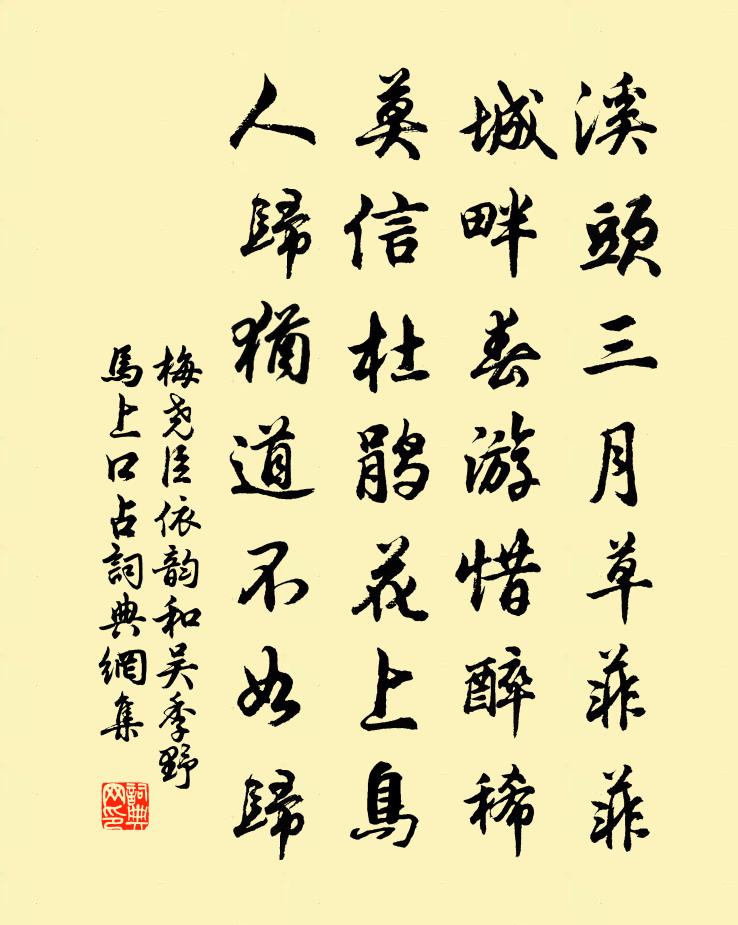 溪頭三月草菲菲
城畔春游惜醉稀
莫信杜鹃花上鳥
人歸猶道不如歸
梅尧臣依韵和吴季野
馬上口占詞典網集
詞典
网印